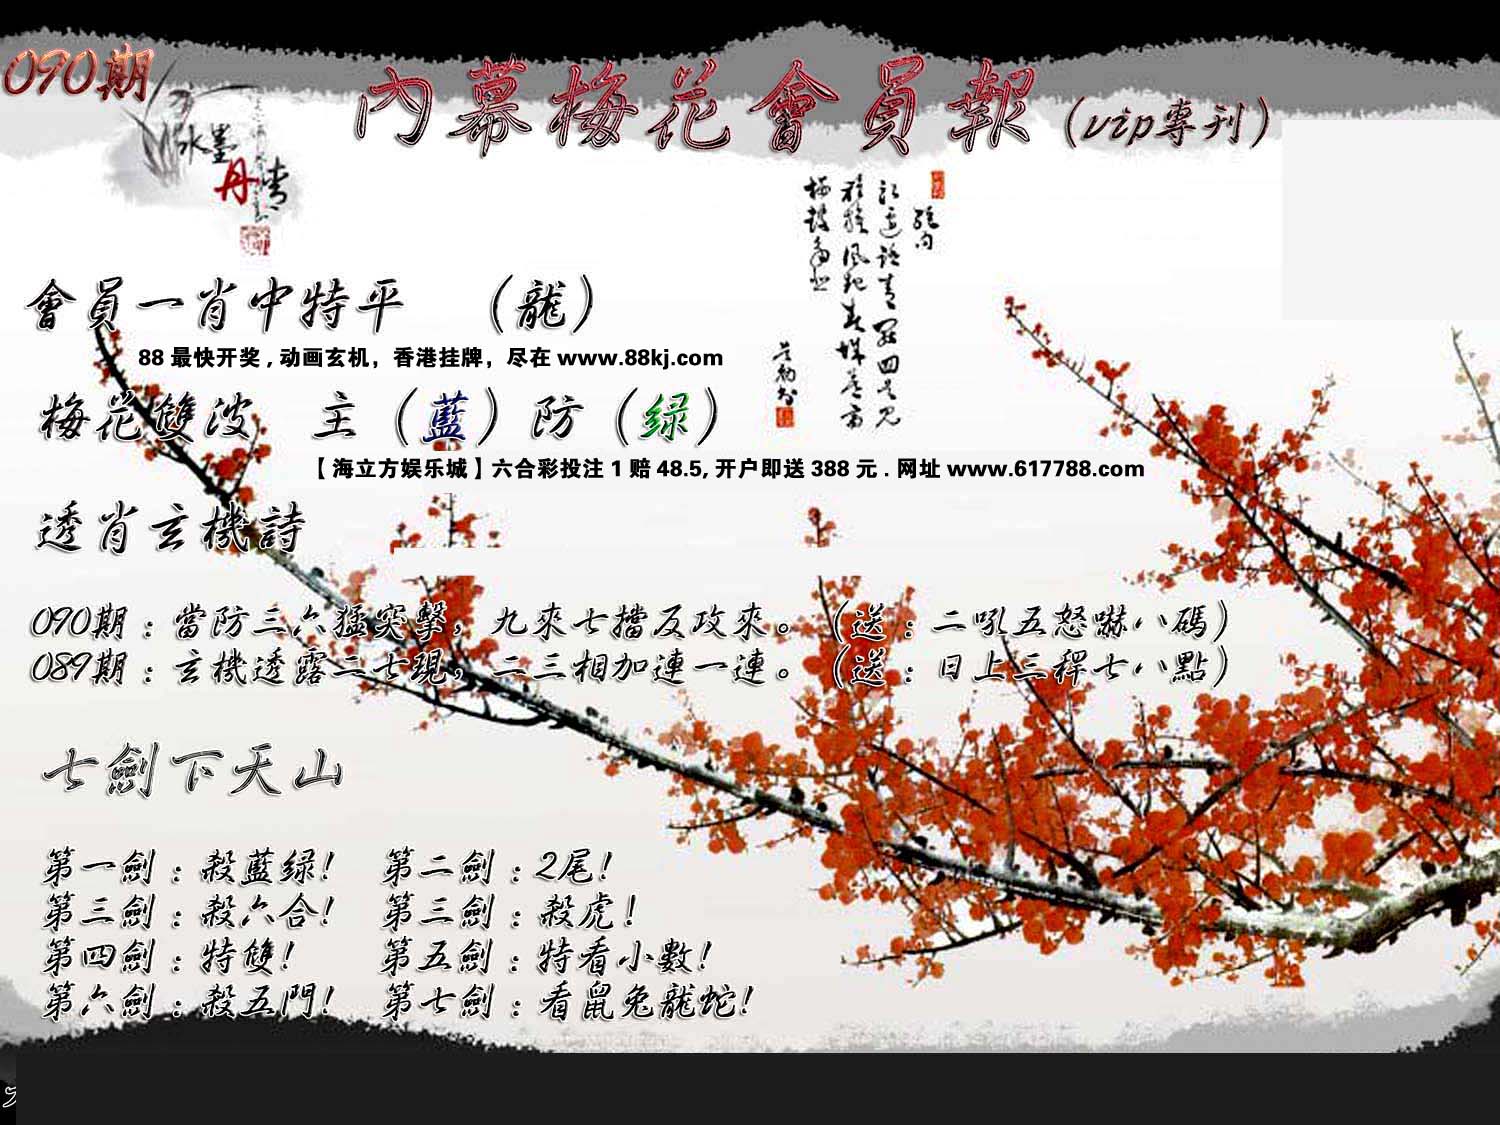 090期
內幕梅花會員報(vip專刊)
水墨丹青
會員一肖中特平 (龍)
88最快开奖,动画玄机，香港挂牌，尽在www.88kj.com
梅花雙波 主(藍)防(绿)
【海立方娱乐城】六合彩投注1赔48.5,开户即送388元.网址www.617788.com
透肖玄機詩
090期：當防三六猛突擊，九來七擋反攻來。(送：二吼五怒嚇八碼)
089期：玄機透露二七現，二三相加連一連。(送：日上三稈七八點)
七劍下天山
第一劍：殺藍绿! 第二劍：2尾!
第三劍：殺六合! 第三劍：殺虎!
第四劍：特雙! 第五劍：特看小數!
第六劍：殺五門! 第七劍：看鼠兔龍蛇!